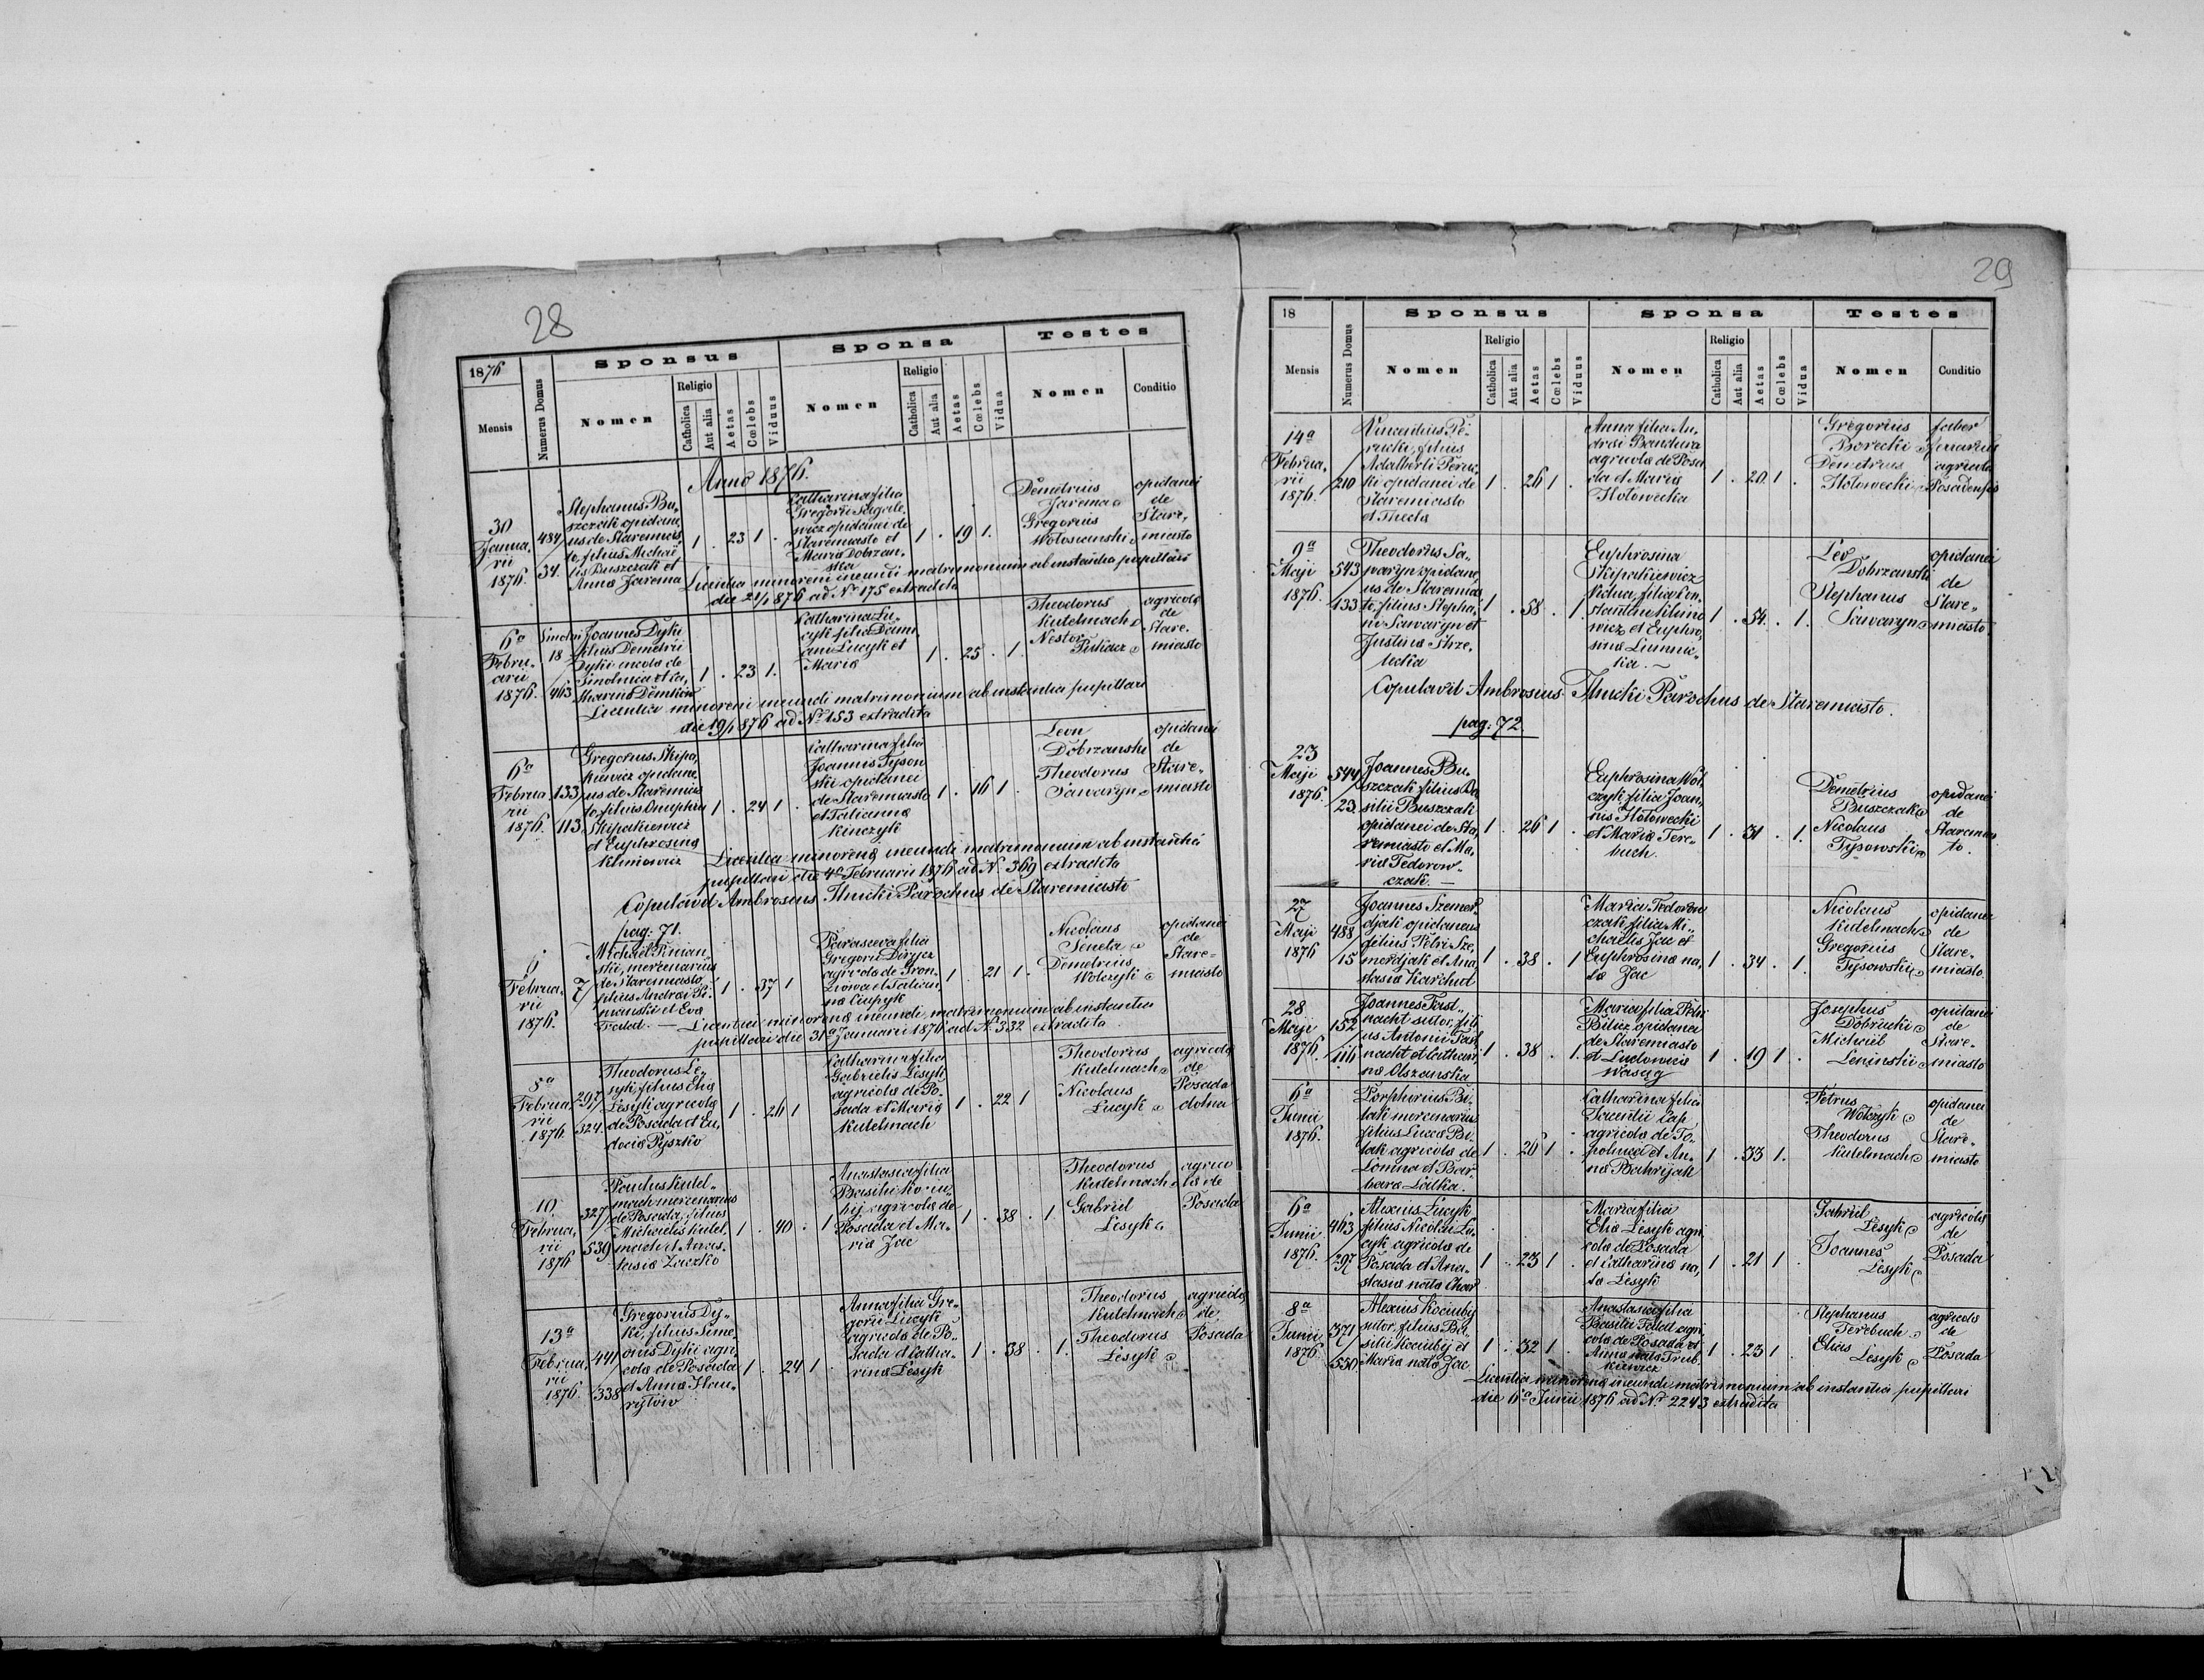 28
1876
Mensis
Numerus Domus
Sponsus
Nomen
Religio
Catholica
Aut alia
Aetas
Cœlebs
Viduus
Sponsa
Nomen
Religio
Catholica
Aut alia
Aetas
Cœlebs
Vidua
Testes
Nomen
Conditio
Anno 1876.
30
Janua,
rii
1876.
484
34.
Stephanus Bu,
szczak opidane,
us de Staremias,
to, filius Michae,
lis Buszczak et
Anna Jarema
1 . 23 1 .
Catharina filia
Gregorii Sagale,
wicz opidanei de
Staremiasto et
Maria Dobrzan,
ska
1 . 19 1.
Demetrius
Jarema
Gregorius
Wołosianski
opidanei
de
Stare,
miasto
Licentia minoreni ineundi matrimonium ab instantia pupillari
die 21/1 876 ad Nr 175 extradita
6a
Febru,
arii
1876.
18
463
Joannes Dyki
filius Demetrii
Dyki incola de
Sinolnica et Ca,
tharina Demkow
1 . 23 1.
Catharina Lu,
cyk filia Dami,
ani Lucyk et
Maria
1 . 25 . 1
Theodorus
Kutelmach
Nestor
agricola
de
Stare.
miasto
Licentia minoreni ineundi matrimonium ab instantia pupillari
die 19/1 876 ad Nr 153 extradita
6a
Februa
rii
1876.
133
113
Gregorius Skipa,
kiewicz opidane,
us de Staremias
to, filius Onuphrii
Skipakiewicz
et Euphrosina
Klimowicz
1 . 24 1 .
Catharina filia
Joannis Tyson
ski opidanei
de Staremiasto
et Tatianna
Kinczyk
1 . 16 1 .
Leon
Dobrzanski
Theodorus
Sawaryn
opidanei
de
Stare,
miasto
Licentia minorena ineundi matrimonium ab instantia
pupillari die 4a Februarii 1876 ad Nr. 369 extradita
Copulavit Ambrosius Ilnicki Parochus de Staremiasto
pag: 71.
6
Februa,
rii
1876.
7
Michael Piniań,
ski, mercenarius
de Staremiasto
filius Andreae Pi,
nianski et Eva
1 . 37 1
Parasceva filia
Gregorii
agricola de
1 . 21 1 .
Nicolaus
Seneta
Demetrius
Wołczyk
opidanei
de
Stare=
miasto
Licentia minorena ineundi matrimonium ab instantia
pupillari die 31a Januarii 1876 ad Nr. 332 extradita
8a
Februa,
rii
1876.
297
324.
Theodorus Le,
syk filius Elia
Lesyk agricola
de Posada et Eu,
docia Pyszko
1 . 26 1
Catharina filia
Gabrielis Lesyk
agricola de Po,
sada et Maria
Kutelmach
1 . 22 1
Theodorus
Kutelmach
Nicolaus
Lucyk
agricola
de
Posada
dolna
10
Februa,
rii
1876
327
539
Paulus Kutel,
mach mercenarius
de Posada, filius
Michaelis Kutel,
mach et Anas,
tasia Zaczko
1 . 40 . 1
Anastasia filia
Basilii Kociu,
bij agricola de
Posada et Ma,
ria Jac
1 . 38 . 1
Theodorus
Kutelmach
Gabriel
Lesyk
agrico
la de
Posada
13a
Februa,
rii
1876.
441
338
Gregorius Dy,
ki, filius Sime,
onis Dyki agri,
cola de Posada
et Anna Haw,
ryłow
1 . 24 1 .
Anna filia Gre,
gorii Lucyk
agricola de Po,
sada et Catha,
rina Lesyk
1 . 38 . 1.
Theodorus
Kutelmach
Theodorus
Lesyk
agricola
de
Posada
29
18
Mensis
Numerus Domus
Sponsus
Nomen
Religio
Catholica
Aut alia
Aetas
Cœlebs
Viduus
Sponsa
Nomen
Religio
Catholica
Aut alia
Aetas
Cœlebs
Vidua
Testes
Nomen
Conditio
14a
Februa,
rii
1876.
210
Vincentius Pe,
rucki, filius
Adalberti Peruc,
ki opidanei de
Staremiasto
et Thecla
1 . 26 1 .
Anna filia An,
dreæ Bandura
agricola de Posa
da et Maria
Hołowecka
1 . 20 1 .
Gregorius
Borecki
Demetrius
Hołowecki
faber
agricola
Posadensis
9a
Maji
1876.
543
133
Theodorus Sa,,
waryn opidane,
us de Staremias
to, filius Stepha,
ni Sawaryn et
Justina Strze,
lecka
1 . 58 . 1.
Euphrosina
Skipakiewicz
vidua, filia Con,
stantini Klimo
wicz et Euphro,
sina
1 . 54 . 1.
Leo
Dobrzanski
Stephanus
Sawaryn
opidanei
de
Stare=
miasto
Copulavit Ambrosius Ilnicki Parochus de Staremiasto.
pag: 72.
23
Maji
1876.
544
23.
Joannes Bu,
szczak filius Ba
silii Buszczak
opidanei de Sta,
remiasto et Ma,
ria Fedorow,,
czak. —
1 . 26 1 .
Euphrosina Woł,
czyk filia Joan,
nis Hołowecki
et Maria Tere,
buch.
1 . 31 . 1.
Demetrius
Buszczak
Nicolaus
Tysowski
opidanei
de
Staremias
to.
27
Maji
1876
488
15
Joannes Szemer,
djak opidaneus
filius Petri Sze,
merdjak et Ana
stasia Karchut
1 . 38 . 1
Maria Fedorow
czak filia Mi,,
chaelis Jac et
Euphrosina na,
ta Jac
1 . 34 . 1.
Nicolaus
Kutelmach
Gregorius
Tysowski
opidanei
de
Stare,
miasto.
28
Maji
1876.
152
116
Joannes Fast,,
nacht sutor, fili
us Antonii Fast
nacht et Cathari,
na Olszanska
1 . 38 . 1.
Maria filia Petri
Bilicz opidanei
de Staremiasto
et Ludowica
Wasag
1 . 19 1 .
Josephus
Dobrucki
Michael
Leninskii
opidanei
de
Stare=
miasto
6a
Junii
1876.
Porphorius Bi,
lak mercenarius
filius Luca Bi,
lak agricola de
Lomna et Bar,
bara Lalka.
1 . 26 1 .
Catharina filia
agricola de To,
polnica et An,
na Bahrijak
1 . 33 1.
Petrus
Wołczyk
Theodorus
Kutelmach
opidanei
de
Stare,
miasto
6a
Junii
1876.
463
297
Alexius Lucyk
filius Nicolai Lu,
cyk agricola de
Posada et Ana,
stasia nata Char
1 . 23 1 .
Maria filia
Elia Lesyk agri
cola de Posada
et Catharina na,
ta Lesyk
1 . 21 1 .
Gabriel
Lesyk
Joannes
Lesyk
agricola
de
Posada
8a
Junii
1876.
371
550
Alexius Kociubij
sutor, filius Ba,
silii Kociubij et
Maria nata Jac
1 . 32 1 .
Anastasia filia
Basilii Falat agri
cola de Posada et
Anna nata Trub
kiewicz
1 . 23 1 .
Stephanus
Terebuch
Elias
Lesyk
agricola
de
Posada
Licentia minorena ineundi matrimonium ab instantia pupillari
die 6a Junii 1876 ad Nr 2243 extradita